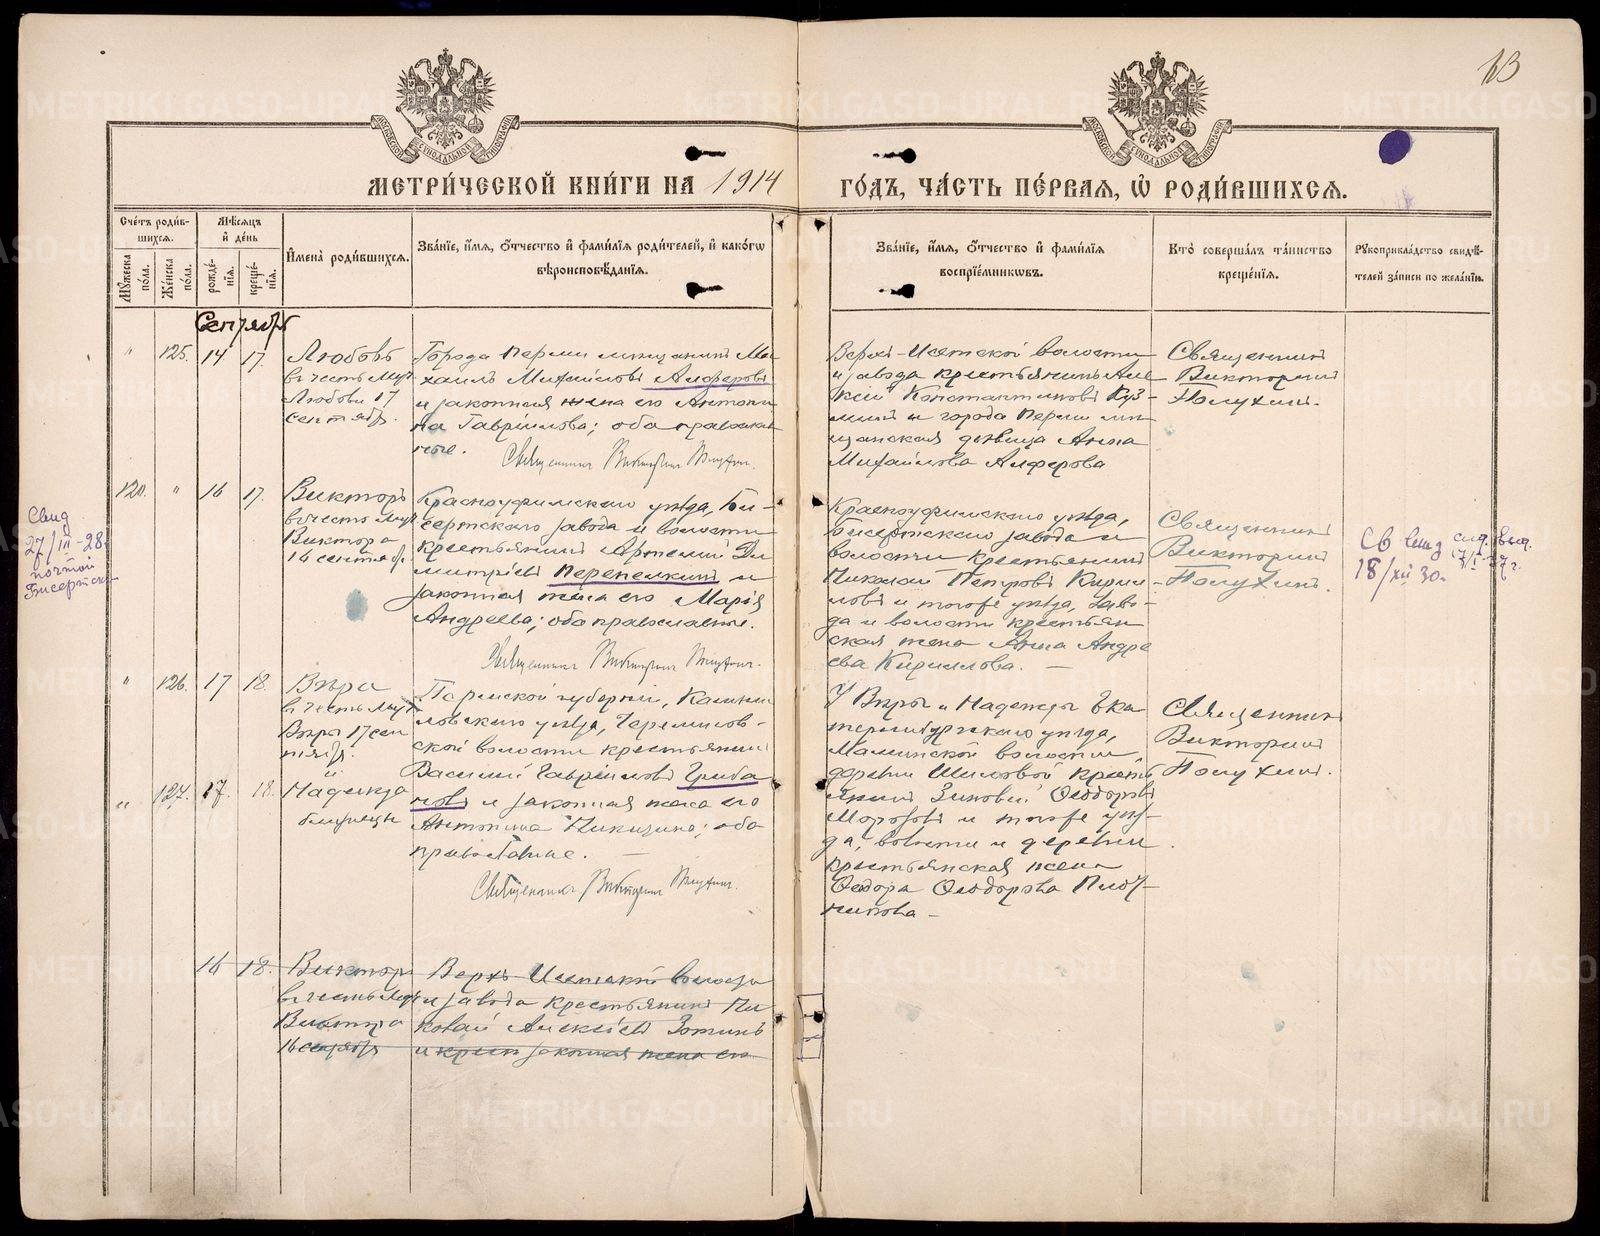 13
МЕТРИ́ЧЕСКОЙ КНИ́ГИ НА 1914 ГО́ДЪ, ЧА́СТЬ ПЕ́РВАЯ, Ѽ РОДИ́ВШИХСЯ.
Сче́тъ роди́в-
шихся.
Му́жеска по́ла.
Же́нска по́ла.
Мѣ́сяцъ
и҆ де́нь
рожде́-
нїя.
креще́-
нїя.
И҆мена̀ роди́вшихся.
Зва́нїе, и҆́мя, ѻ҆́тчество и҆ фами́лїя роди́телей, и҆ како́гѡ
вѣроисповѣ́данїя.
Зва́нїе, и҆́мя, ѻ҆́тчество и҆ фами́лїя
воспрїе́мникѡвъ.
Кто̀ соверша́лъ та́инство
креще́нїя.
Рꙋкоприкла́дство свидѣ́-
телей за́писи по жела́нїю.
Сентябрь
" 125. 14 17.
Любовь
въ честь муч.
Любови 17
сентябр.
Города Перми мѣщанинъ Ми-
хаилъ Михайловъ Алферовъ
и законная жена его Антони
на Гавріилова; оба православ
ные.
Священникъ Викторинъ
Верхъ-Исетской волости
и завода крестьянинъ Але
ксѣй Константиновъ Куз-
минъ и города Перми мѣ-
щанская дѣвица Анна
Михайлова Алферова
Священникъ
Викторинъ
Полухинъ.
120. " 16 17.
Викторъ
въ честь муч.
Виктора
16 сентябр.
Красноуфимскаго уѣзда, Би-
сертскаго завода и волости
крестьянинъ Артемій Ди
митріевъ Перепелкинъ и
законная жена его Марія
Андреева; оба православные.
Священникъ Викторинъ
Красноуфимскаго уѣзда,
Бисертскаго завода и
волости крестьянинъ
Николай Петровъ Кирил
ловъ и того же уѣзда, заво-
да и волости крестьян
ская жена Анна Андре
ева Кириллова. —
Священникъ
Викторинъ
Полухинъ.
Свид
27/III-28.
почтой
Бисертск
Св свид
18/XII 30.
" 126. 17 18.
Вѣра
въ честь муч.
Вѣры 17 сен
тября.
и
" 127. 17. 18.
Надежда
близнецы
Пермской губерніи, Камыш
ловскаго уѣзда,
ской волости крестьянинъ
Василій Гавріиловъ Гриба
новъ и законная жена его
Антонина Никитина; оба
православные. —
Священникъ Викторинъ
У Вѣры и Надежды Ека
теринбургскаго уѣзда,
Маминской волости,
деревни Шиловой кресть
янинъ Зиновій Ѳеодоровъ
Морозовъ и того же уѣз-
да, волости и деревни
крестьянская жена
Ѳеодора Ѳеодорова Плот-
никова —
Священникъ
Викторинъ
Полухинъ.
16 18.
Викторъ
въ честь муч.
Виктора
16 сентября
Верхъ-Исетской волости
и завода крестьянинъ Ни
колай Алексѣевъ Зотинъ
и законная жена его